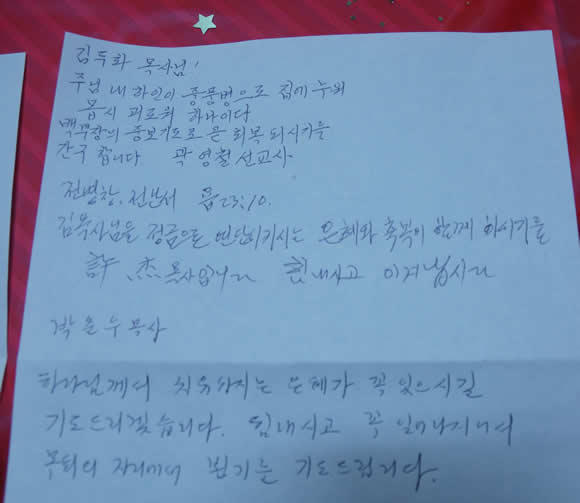 김두화 목사님!
주님 내 하인이 중풍병으로 집에 누워
몹시 괴로워 하나이다
백부장의 중보기도로 은 회복되시기를
간구 합니다 곽영철 선교사.
전병창, 전난서 욥23:10.
김목사님을 정금으로 연단시키시는 은혜와 축복이 함께 하시기를
許 杰 목사입니다 힘내시고 이겨냅시다
박윤수 목사
하나님께서 치유하시는 은혜가 꼭 있으시길
기도드리겠습니다. 힘내시고 꼭 일어나시어서
목회의 자리에서 뵙기를 기도드립니다.